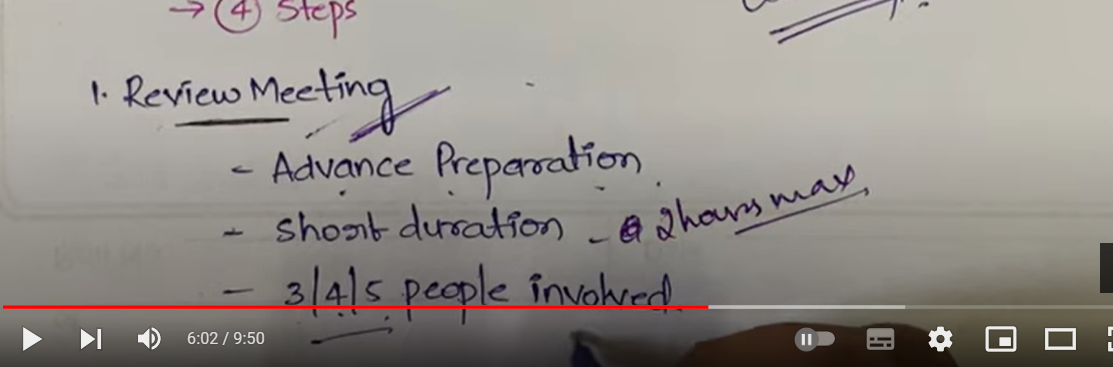 → ④ Steps
1. Review Meeting
- Advance Preparation
- Short duration - 2hours max,
- 3/4/5 people involved.
6:02 / 9:50